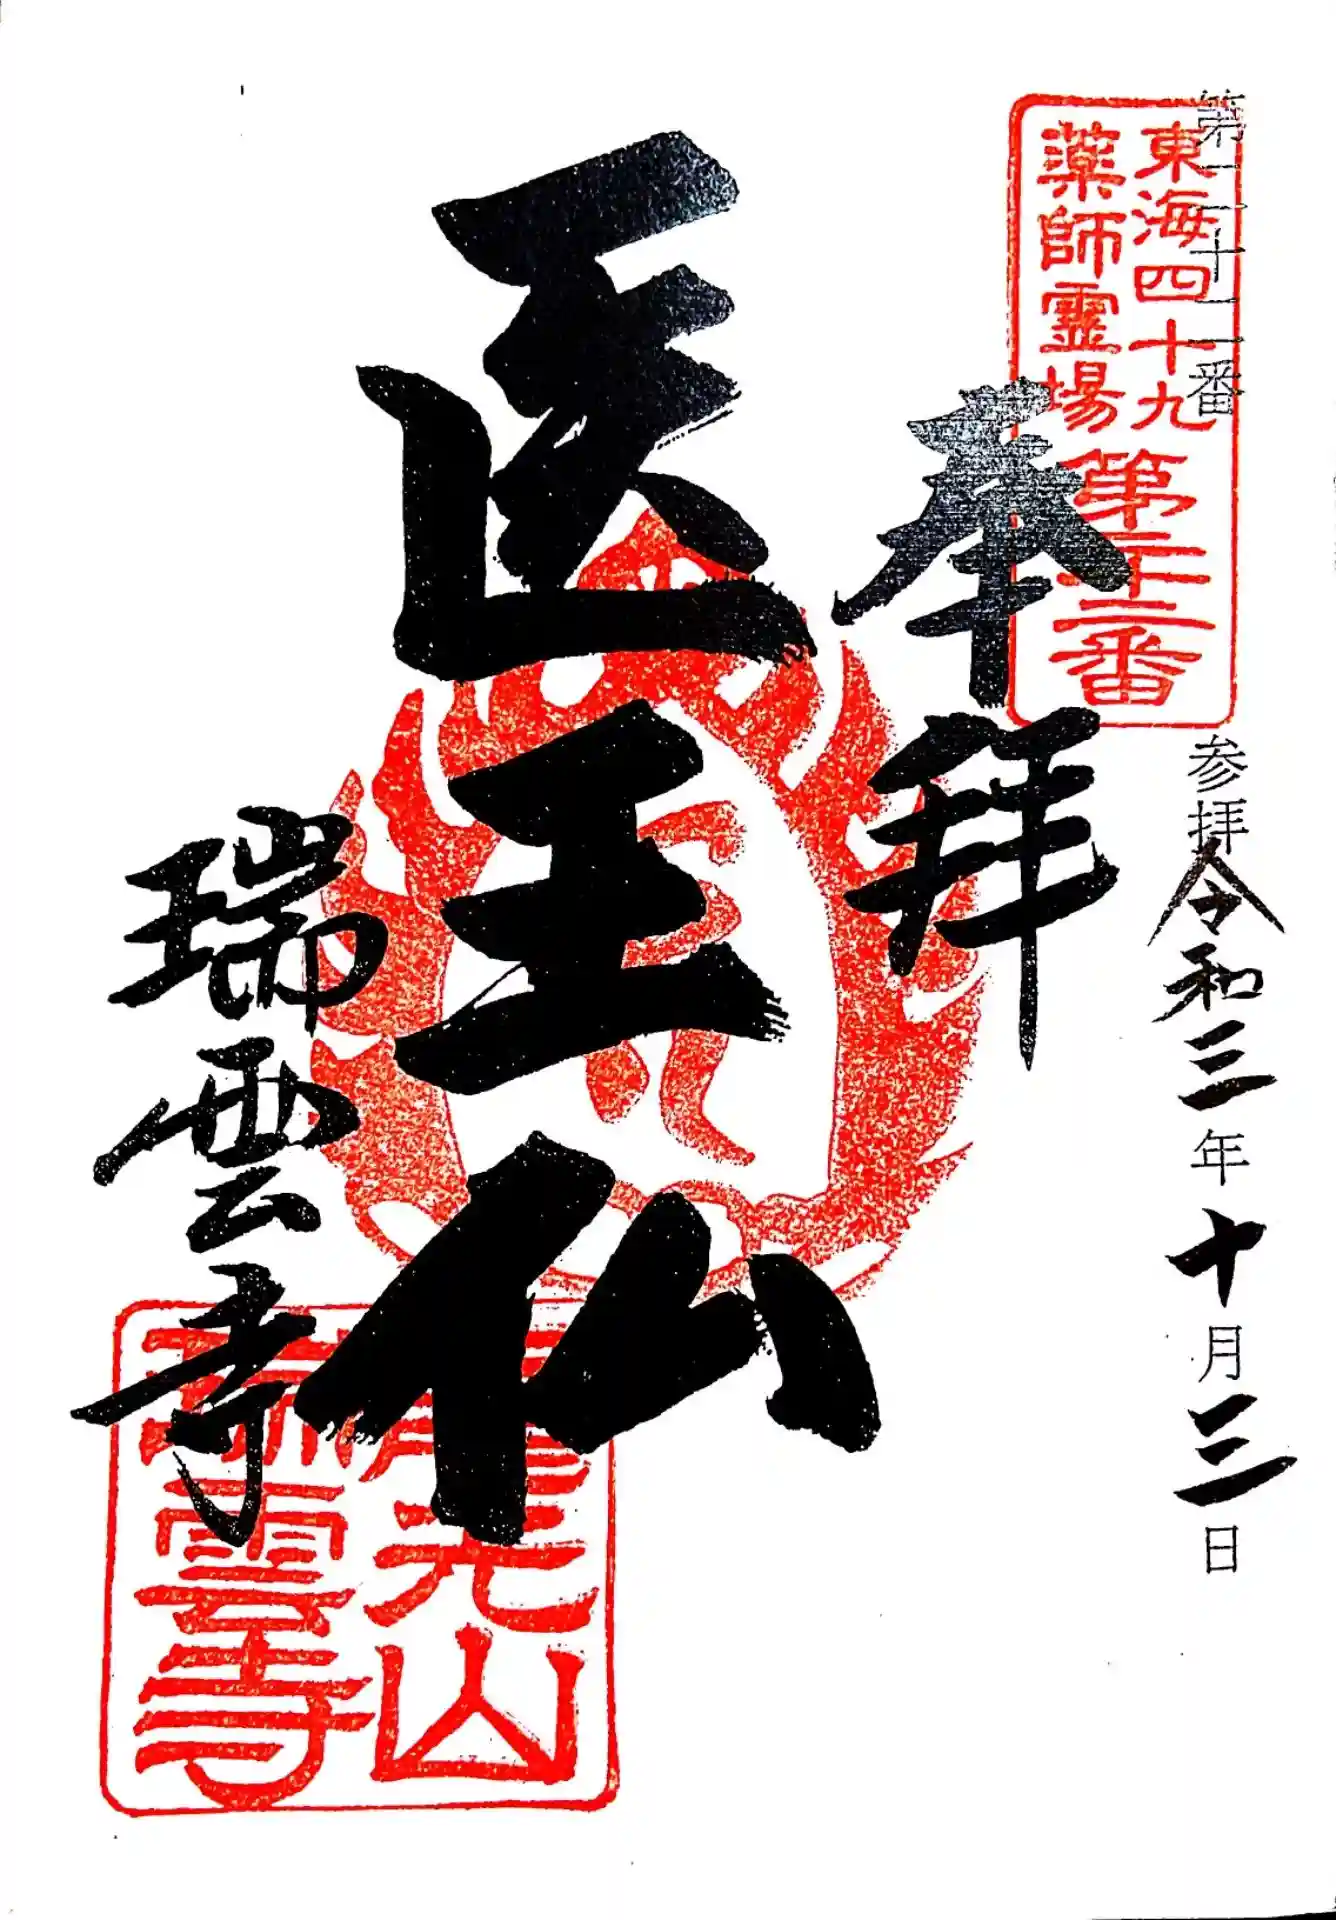 第二十二番 参拝 令和三年十月三日
東海四十九
薬師霊場
第二十二番
奉拝
医王仏
瑞雲寺
龍光山
瑞雲寺